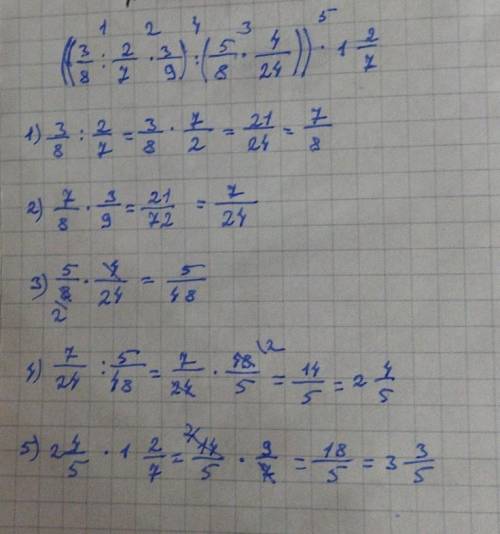 1 2 4 3 5
((3/8 : 2/7 · 3/9) : (5/8 · 4/24)) · 1 2/7
1) 3/8 : 2/7 = 3/8 · 7/2 = 21/24 = 7/8
2) 7/8 · 3/9 = 21/72 = 7/24
3) 5/8 · 4/24 = 5/48
2
4) 7/24 : 5/48 = 7/24 · 48/5 \2 = 14/5 = 2 4/5
5) 2 4/5 · 1 2/7 = 2\14/5 · 9/7 = 18/5 = 3 3/5